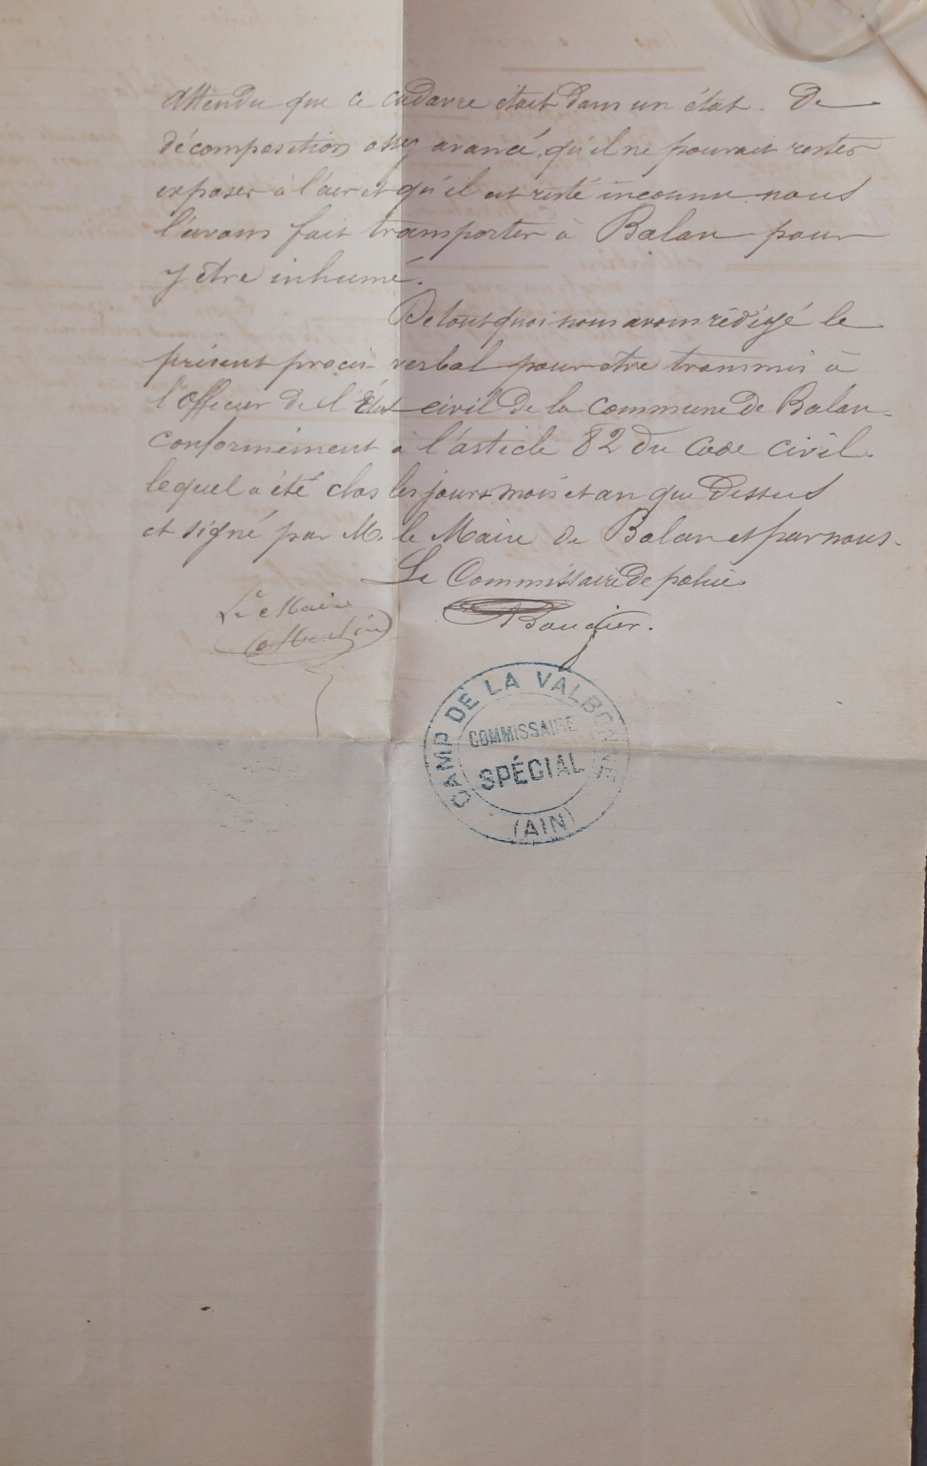 Attendu que ce cadavre était dans un état de
décomposition assez avancé, qu'il ne pouvait rester
exposer à l'air et qu'il est resté inconnu nous
l'avons fait transporter à Balan pour
y être inhumé.
De tout quoi nous avons rédigé le
présent procès verbal pour être transmis à
l'Officier de l'État civil de la commune de Balan
conformément à l'article 82 du Code civil.
lequel a été clos les jours mois et an que dessus
et signé par M. le Maire de Balan et par nous.
Le Commissaire de police
Le Maire
CAMP DE LA VALBONNE
COMMISSAIRE
SPÉCIAL
(AIN)